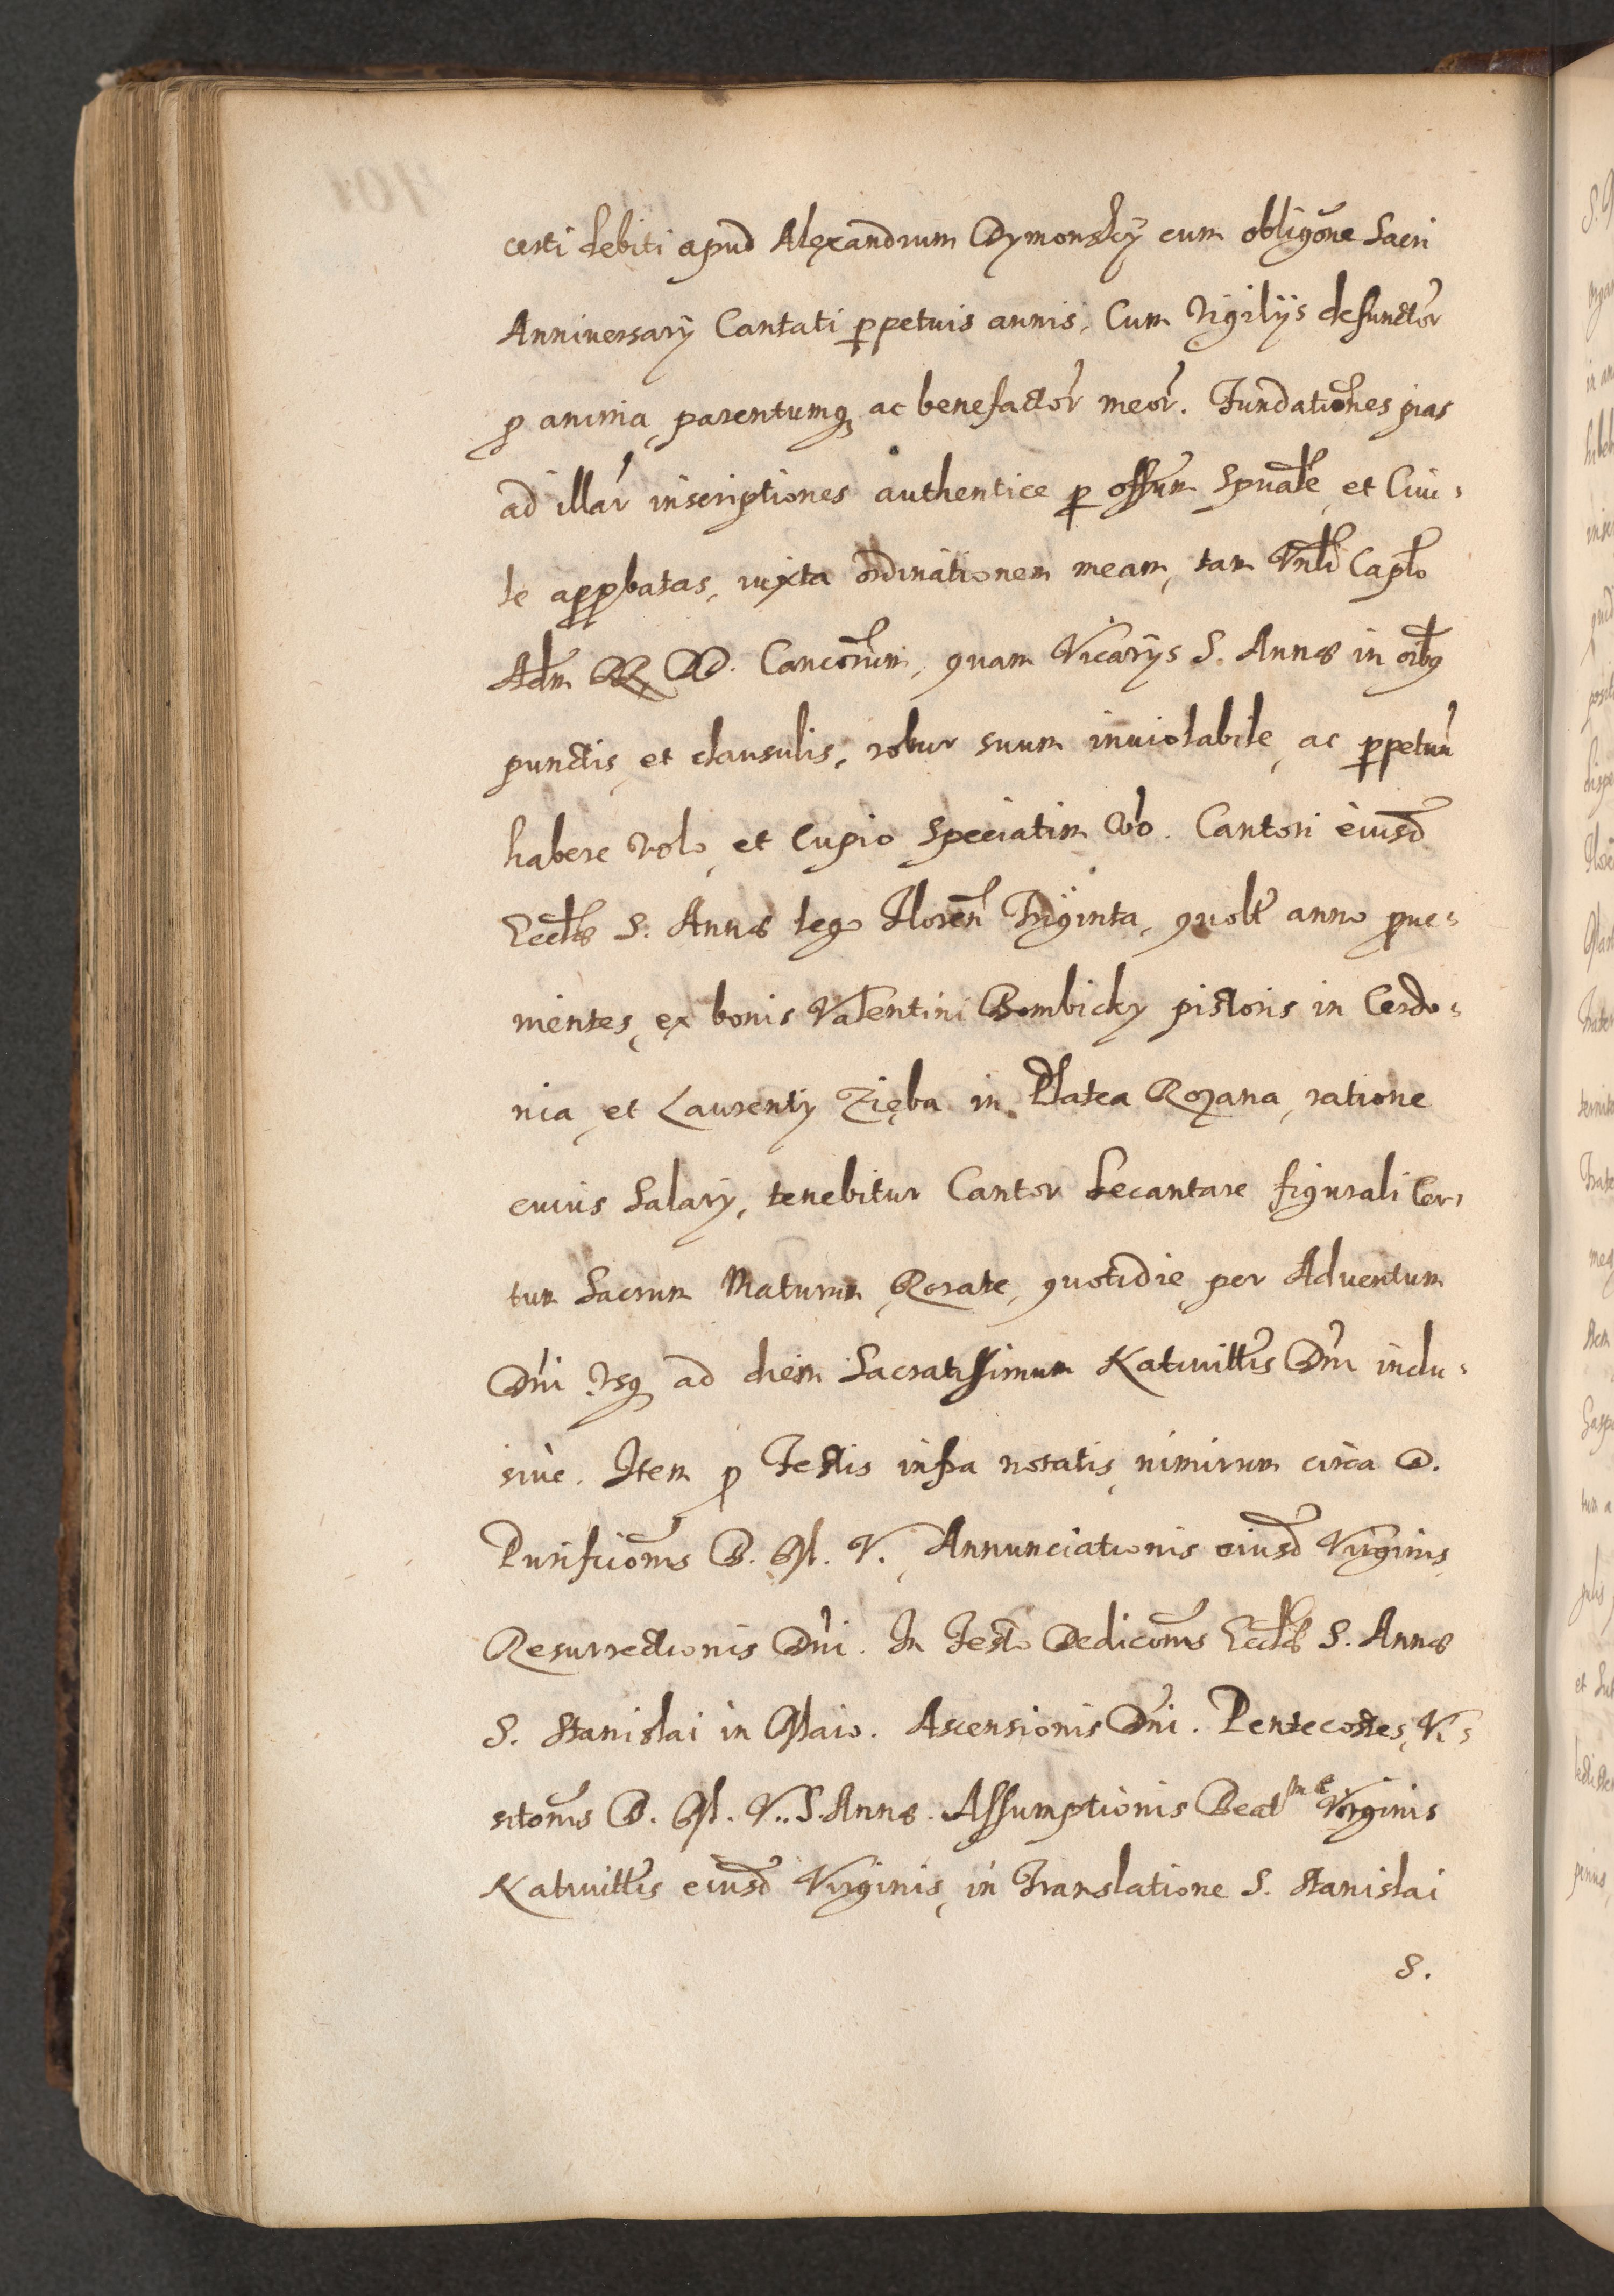 certi debiti apud Alexandrum Dymonsky cum obligõne Sacri
Anniversarÿ Cantati ꝑpetuis annis, Cum Vigilÿs defunctor̃
ꝓ anima, parentumqꝫ ac benefactor̃ meor̃. Fundationes pias
ad illar̃ inscriptiones authentice ꝑ offũm Spuãle, et Ciui-
le apꝓbatas, iuxta ordinationem meam, tam Vnłi Capło
Adm̃ RR DD. Cancorum, quam Vicarÿs S. Annæ in oĩbꝫ
punctis, et clausulis, robur suum inuiolabile, ac ꝑpetuũ
habere volo, et Cupio Speciatim Vo. Cantori eiusd̃
Eccłiæ S. Annæ lego Floreñ Triginta, quolt anno ꝓue-
nientes, ex bonis Valentini Bombicky pistoris in Cerdo-
nia, et Laurentÿ Zięba in Platea Rozana, ratione
cuius Salarÿ, tenebitur Cantor decantare figurali Can-
tum Sacrum Maturum, Rorate, quotidie per Adventum
Dñi Vsqꝫ ad diem Sacratissimum Natiuittis Dñi inclu-
siue. Item ꝓ Festis infra notatis, nimirum circa D.
Purificõnis B. M. V., Annunciationis eiusd̃ Virginis,
Resurrectionis Dñi. In Festo Dedicõnis Eccłiæ S. Annæ
S. Stanislai in Maio. Ascensionis Dñi. Pentecostes, Vi-
sitõnis B. M. V.. S. Annæ. Assumptionis Beat^mæ Virginis
Natiuittis eiusd̃ Virginis, in Translatione S. Stanislai
S.